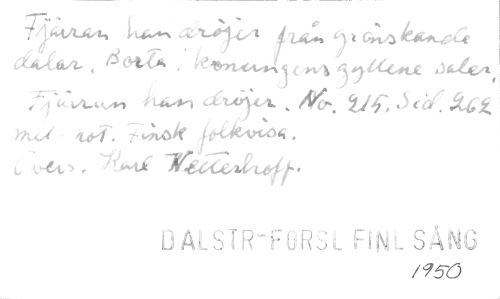 Fjärran han dröjer från grönskande
dalar, Borta i konungens gyllene salar,
Fjärran han dröjer. No. 215. Sid. 262
mel-not. Finsk folkvisa.
Övers. Karl Wetterhoff.
DALSTR-FORSL FINL SÅNG
1950